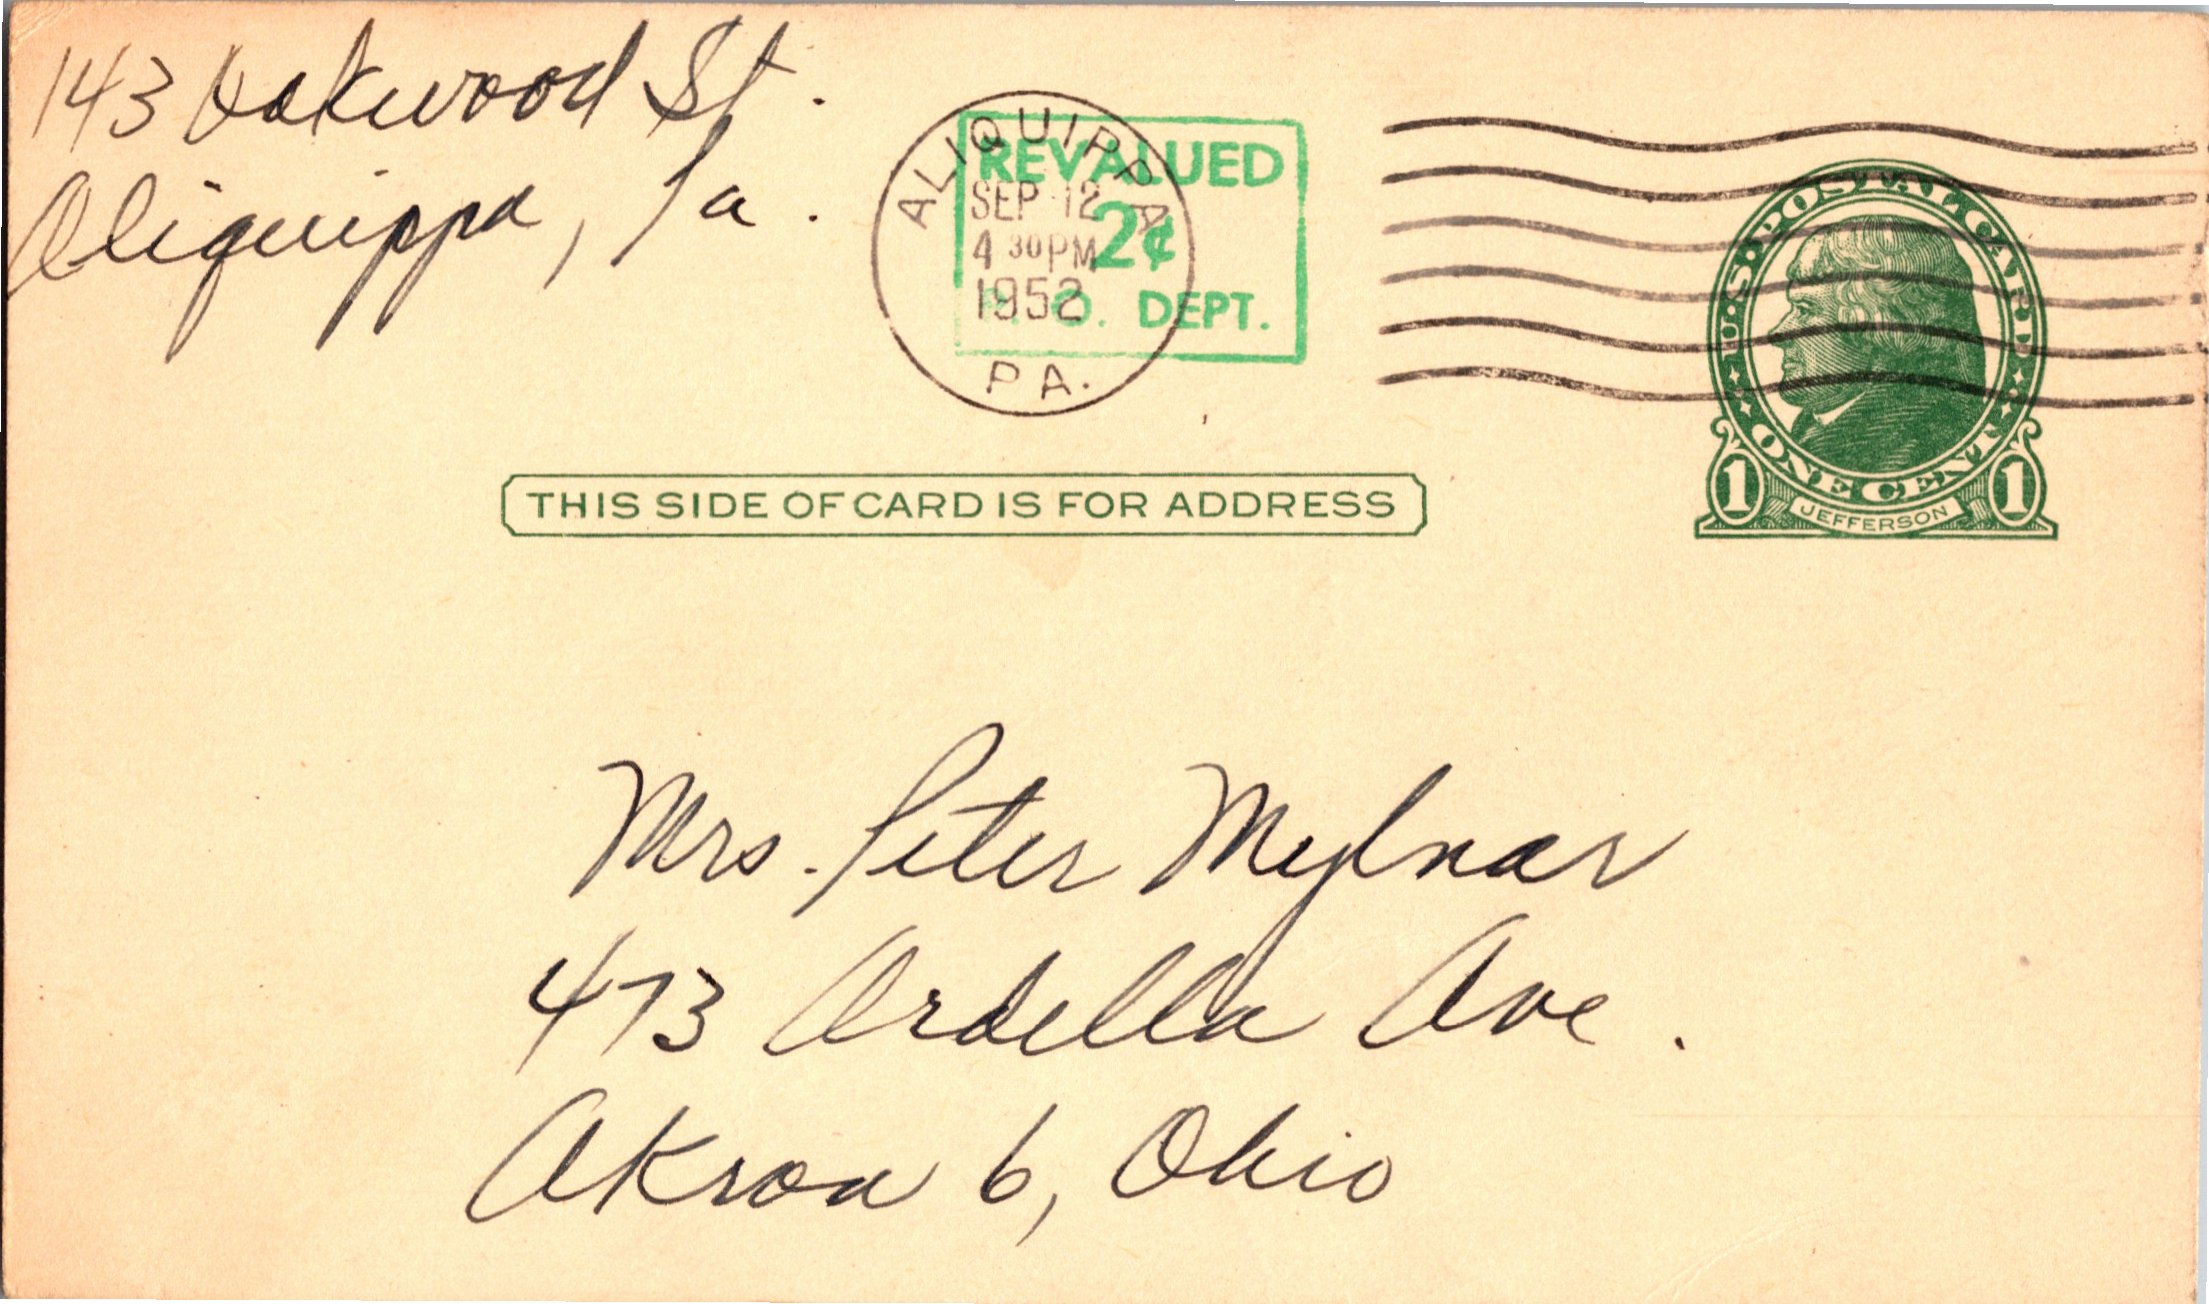 143 Oakwood St.
Aliquippa, Pa.
ALIQUIPPA
SEP 12
4 30 PM
1952
PA.
REVALUED
2¢
P. O. DEPT.
U.S. POSTAL CARD
ONE CENT
1 JEFFERSON 1
THIS SIDE OF CARD IS FOR ADDRESS
Mrs. Peter Mylnar
473 Ardella Ave.
Akron 6, Ohio